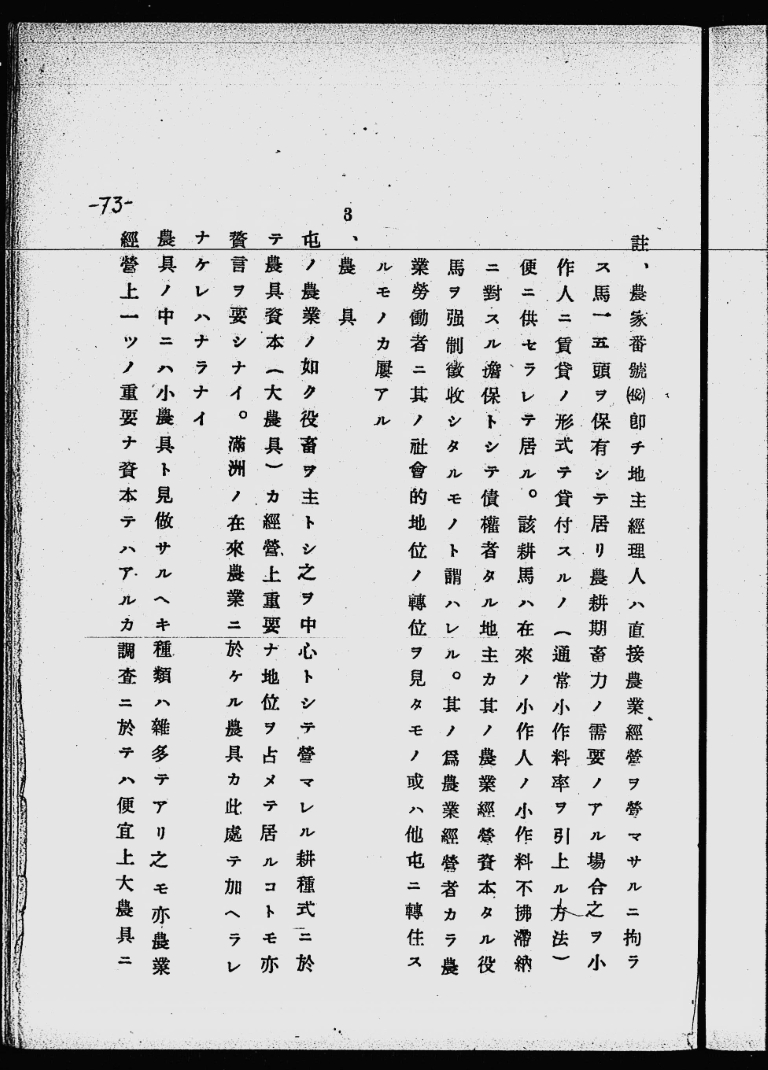 註、農家番號(42)卽チ地主經理人ハ直接農業經營ヲ營マサルニ拘ラ
ス馬一五頭ヲ保有シテ居リ農耕期畜力ノ需要ノアル場合之ヲ小
作人ニ賃貸ノ形式テ貸付スルノ(通常小作料率ヲ引上ル方法)
便ニ供セラレテ居ル。該耕馬ハ在來ノ小作人ノ小作料不拂滯納
ニ對スル擔保トシテ債權者タル地主カ其ノ農業經營資本タル役
馬ヲ强制徵收シタルモノト謂ハレル。其ノ爲農業經營者カラ農
業勞働者ニ其ノ社會的地位ノ轉位ヲ見タモノ或ハ他屯ニ轉住ス
ルモノカ屢アル
3、農具
屯ノ農業ノ如ク役畜ヲ主トシ之ヲ中心トシテ營マレル耕種式ニ於
テ農具資本(大農具)カ經營上重要ナ地位ヲ占メテ居ルコトモ亦
贅言ヲ要シナイ。滿洲ノ在來農業ニ於ケル農具カ此處テ加ヘラレ
ナケレハナラナイ
農具ノ中ニハ小農具ト見做サルヘキ種類ハ雜多テアリ之モ亦農業
經營上一ツノ重要ナ資本テハアルカ調査ニ於テハ便宜上大農具ニ
-73-